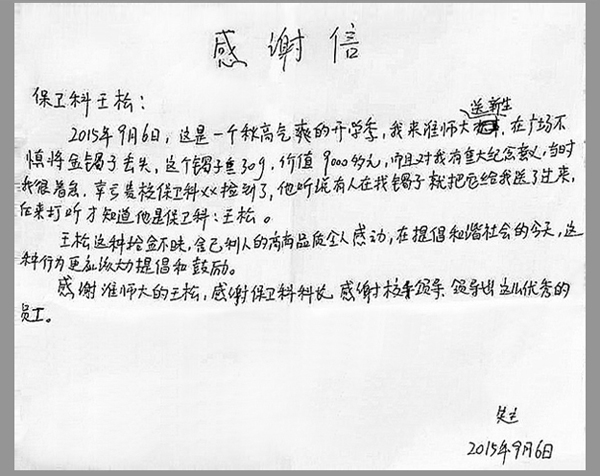 感谢信
保卫科王松：
送新生
2015年9月6日，这是一个秋高气爽的开学季，我来淮师大，在广场不
慎将金镯子丢失，这个镯子重30g，价值9000多元，而且对我有重大纪念意义，当时
我很着急，幸亏贵校保卫科××捡到了，他听说有人在找镯子就把它给我送了过来，
后来打听才知道他是保卫科：王松。
王松这种拾金不昧，舍己利人的高尚品质令人感动，在提倡和谐社会的今天，这
种行为更应该大力提倡和鼓励。
感谢淮师大的王松，感谢保卫科科长，感谢校来领导、领导出这么优秀的
员工。
2015年9月6日